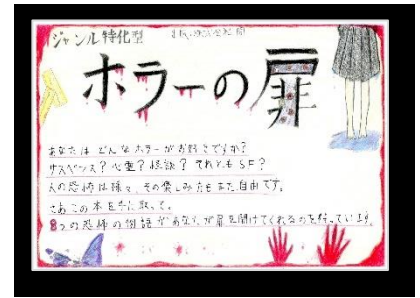 ジャンル特化型
ホラーの扉
あなたは どんな ホラーが お好きですか?
サスペンス? 心霊? 怪談? それとも SF?
人の恐怖は様々、その楽しみ方もまた自由です。
さあこの本を手に取って。
8つの恐怖の物語があなたが扉を開けてくれるのを待っています。